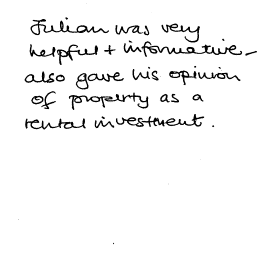 Julian was very
helpful + informative -
also gave his opinion
of property as a
rental investment.